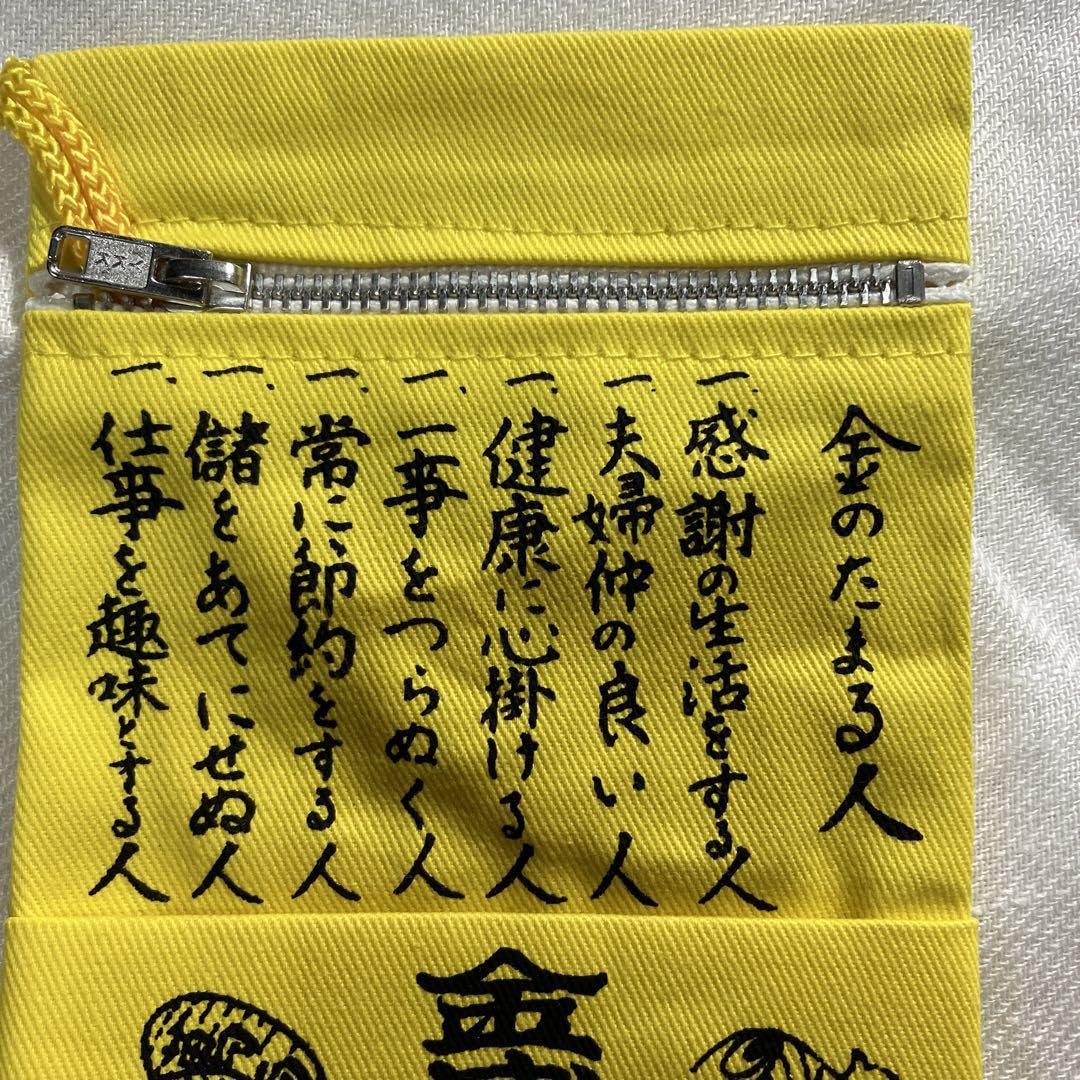 金のたまる人
一、感謝の生活をする人
一、夫婦仲の良い人
一、健康に心掛ける人
一、一事をつらぬく人
一、常に節約をする人
一、儲をあてにせぬ人
一、仕事を趣味とする人
金